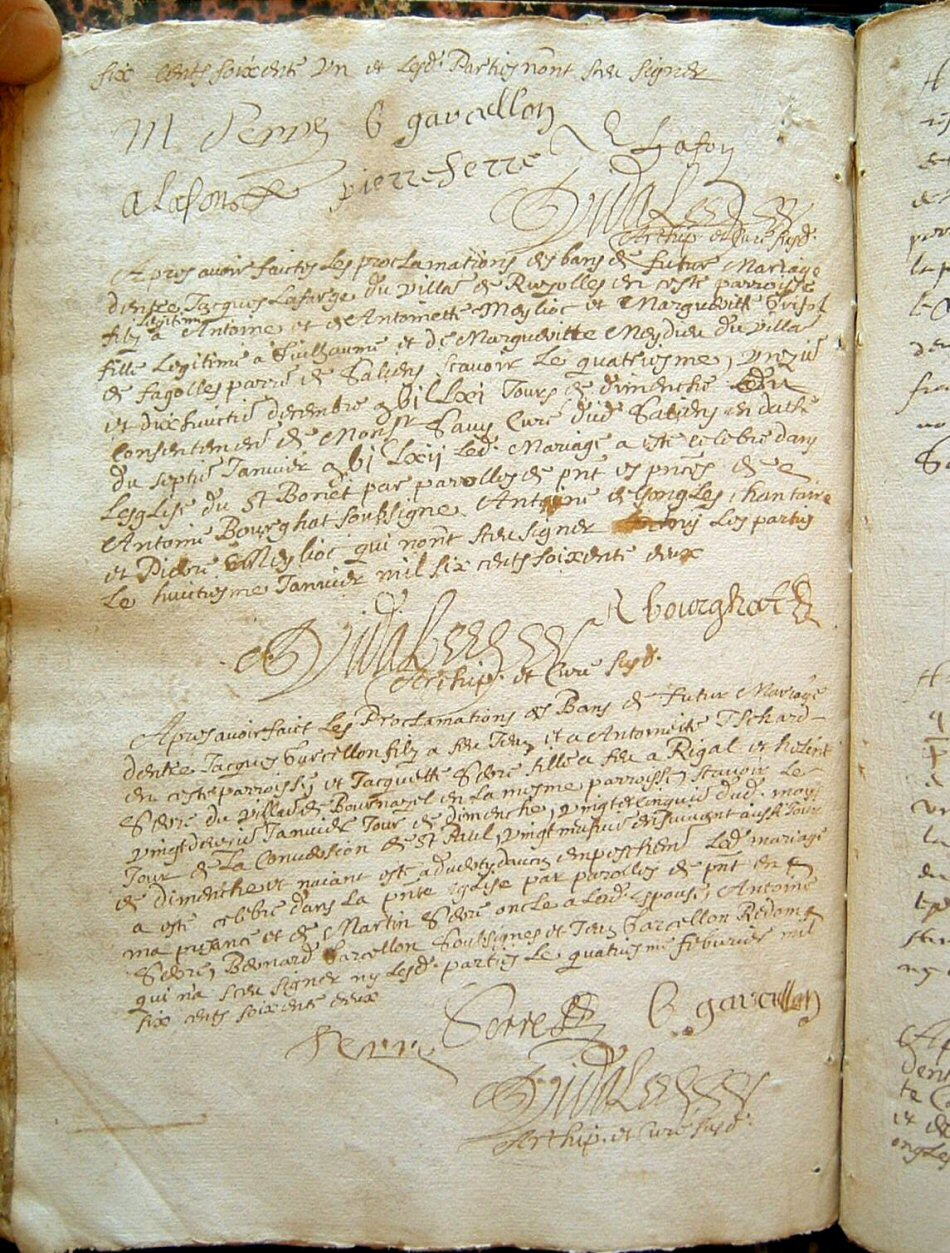 six cents soixente un et lesd. Parties nont sceu signer
M Serre B garcellon
Lafon
alafon pierre Serre
Vidal
Archip. et Curé susd.
Apres avoir faictes les proclamations des bans de futur Mariage
dentre Jacques Lafarge du villa de Ruzolles en ceste parroisse
legitime
filz a Antoine et de Antoinette Meylioc et Margueritte
fille Legitime a Guilhaume et de Margueritte Meydieu du villa
de fagolles parre de Saliens scavoir Le quatriesme, unzie
et dixhuictie decembre Jours de dimenche
Consentement de Monsr Cure dud Saliens en datte
du septie Janvier Led. Mariage a este celebre dans
Lesglise du St Bonet par parolles de pnt es pnces de
Antoine Bourghat soubsigne Antoine de Gongles, chantaire
et Pierre Meylioc qui nont sceu signer Les partis
Le huitiesme Janvier mil six cents soixente deux
bourghat
Vidal
Archip. et Cure susd.
Apres avoir faict Les Proclamations des Bans de futur Mariage
dentre Jacques Garcellon filz a feu Jean et a Antoinette Tschard
en ceste parroisse, et Jacquette Serre fille a feu a Rigal et
Serre du villa de Bournazel en La mesme parroisse, scavoir Le
vingtdeuxie Janvier Jour de dimenche, vingtecinquie dud. moys
Jour de La Conversion de St Paul, vingtneufvie ensuivant aussi Jour
de dimenche et naiant este adverty daucun empeschemt Led. mariage
a este celebre dans La pnte Eglise par parolles de pnt en
ma presance et de Martin Serre oncle a Lad. Espouse, Antoine
Serre, Bernard Garcellon soubsignes et Jean Garcellon
qui na sceu signer ny Lesd. parties Le quatriesme febvrier mil
six cents soixente deux
Serre B garcellon
Serre
Vidal
Archip. et Cure susd.